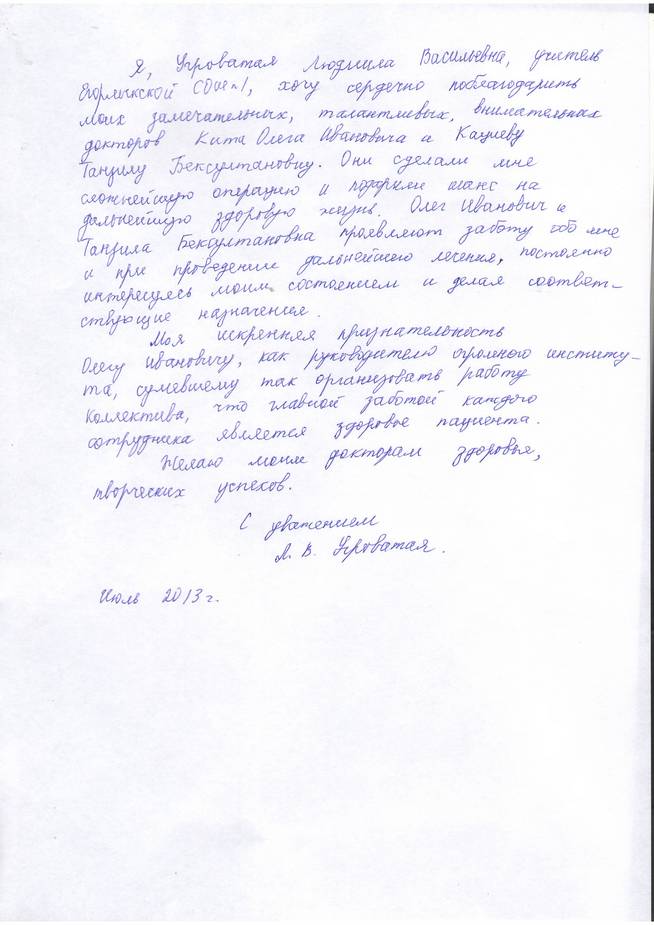 Я, Угроватая Людмила Васильевна, учитель
Егорлыкской СОШ №1, хочу сердечно поблагодарить
моих замечательных, талантливых, внимательных
докторов Кита Олега Ивановича и Кациеву
Танзилу Бексултановну. Они сделали мне
сложнейшую операцию и подарили шанс на
дальнейшую здоровую жизнь. Олег Иванович и
Танзила Бексултановна проявляют заботу обо мне
и при проведении дальнейшего лечения, постоянно
интересуясь моим состоянием и делая соответ-
ствующие назначения.
Моя искренняя признательность
Олегу Ивановичу, как руководителю огромного институ-
та, сумевшему так организовать работу
коллектива, что главной заботой каждого
сотрудника является здоровье пациента.
Желаю моим докторам здоровья,
творческих успехов.
С уважением
Л. В. Угроватая.
Июль 2013 г.